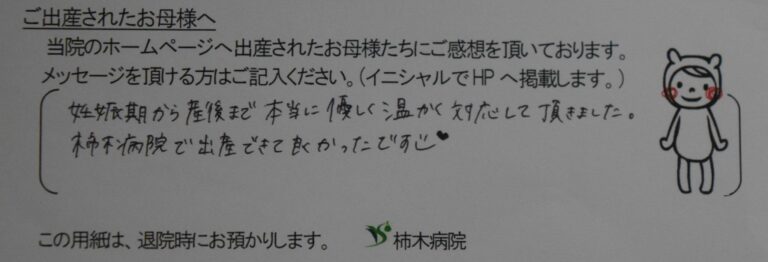 ご出産されたお母様へ
当院のホームページへ出産されたお母様たちにご感想を頂いております。
メッセージを頂ける方はご記入ください。(イニシャルでHPへ掲載します。)
妊娠期から産後まで本当に優しく温かく対応して頂きました。
柿木病院で出産できて良かったです♥
この用紙は、退院時にお預かりします。 柿木病院